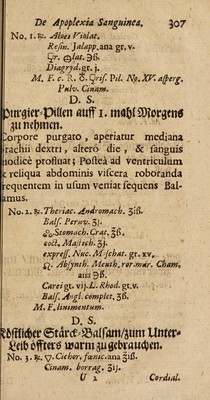 De Apoplexia Sanguinea. 307
No. 1. ℞. Aloes Violat.
Resin. Jalapp. ana gr. v.
Lat. ℈ß.
Diagryd. gr. j.
M. F. c. Pil. No. XV. asperg.
Pulv. Cinam.
D. S.
Purgier-Pillen auff 1. mahl Morgens
zu nehmen.
Corpore purgato, aperiatur mediana
brachii dextri, alterô die, & sanguis
modicè profluat; Posteà ad ventriculum
& reliqua abdominis viscera roboranda
frequentem in usum veniat sequens Bal-
samus.
No. 2. ℞. Theriac. Andromach. ʒiß.
Bals. Peruv. ʒj.
Stomach. Crat. ʒß.
coct. Mastich. ʒj.
express. Nuc. Moschat. gr. xv.
Absynth. Menth. ror. mar. Cham.
ana ℈ß.
Carei gt. vij. L. Rhod. gt. v.
Bals. Angl. complet. ʒß.
M. F. linimentum.
D. S.
Köstlicher Stärck-Balsam/zum Unter-
Leib öffters warm zu gebrauchen.
No. 3. ℞. Cichor. fœnic. ana ℥iß.
Cinam. borrag. ℥ij.
U 2 Cordial.